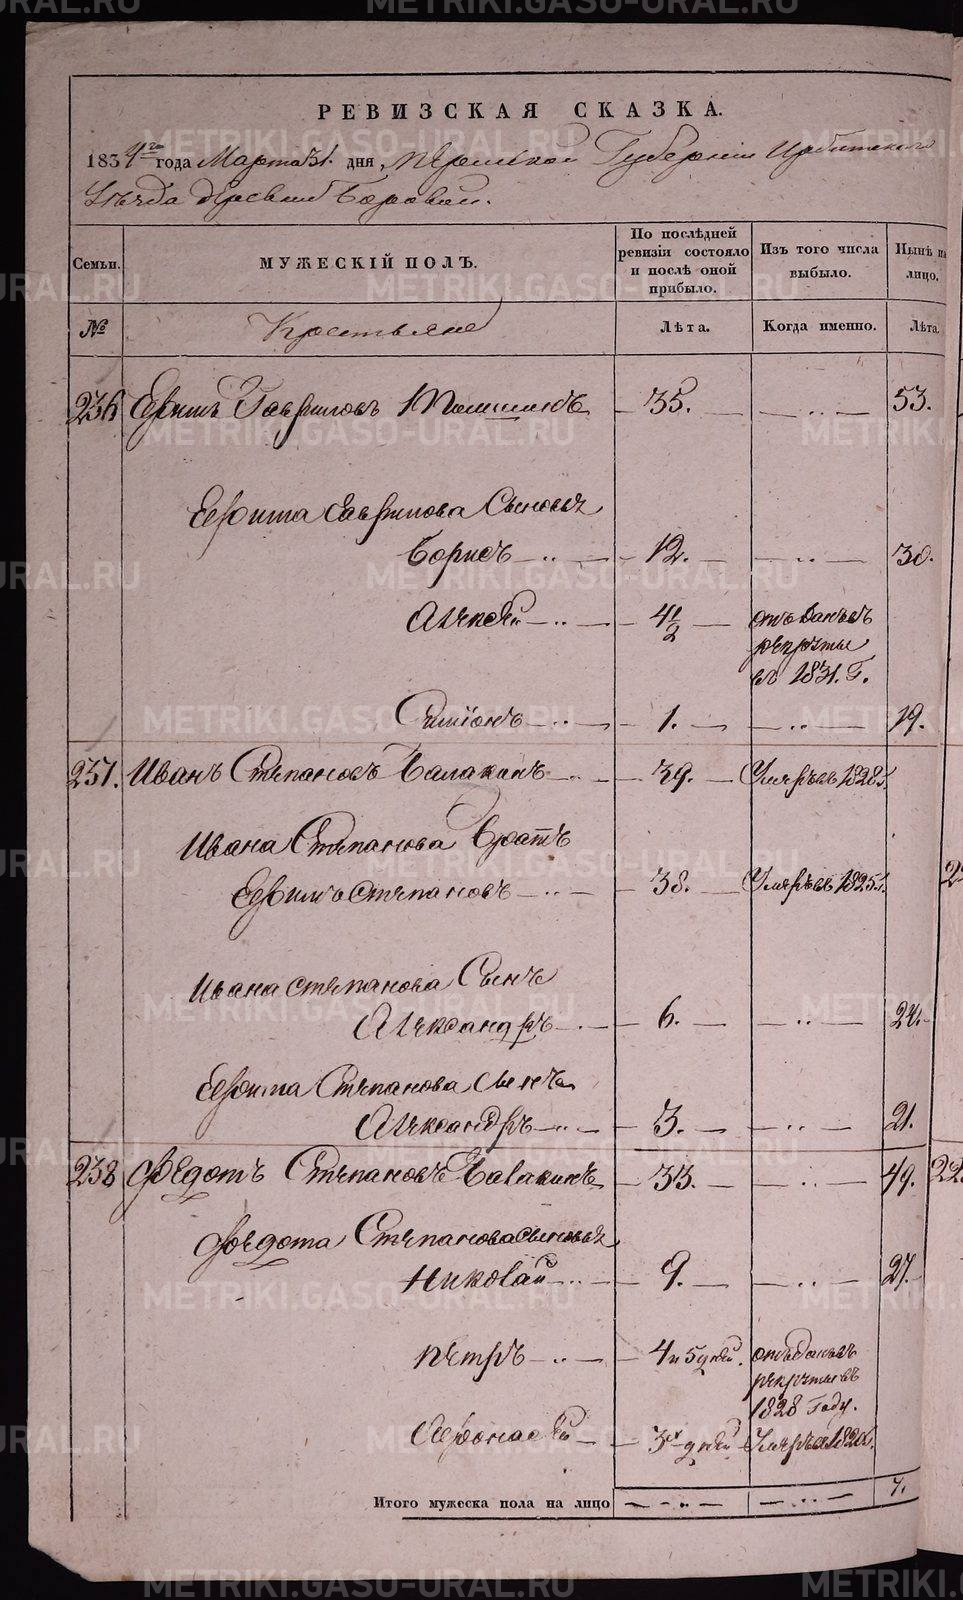 METRIKI.GASO-URAL.RU
РЕВИЗСКАЯ СКАЗКА.
1834го года Марта 31. дня, Пермской Губернии Ирбитского
Уѣзда деревни Боровой.
Семьи.
МУЖЕСКІЙ ПОЛЪ.
По послѣдней ревизіи состояло и послѣ оной прибыло.
Изъ того числа выбыло.
Нынѣ на лицо.
№
Крестьяне
Лѣта.
Когда именно.
Лѣта.
236 Ефимъ Гавриловъ 35. 53.
Ефима Гаврилова Сыновья
Борисъ 12. 30.
Алексѣй 4 1/2 отъданъ въ
рекруты
въ 1831. Г.
Симіонъ 1. 19.
237. Иванъ Степановъ Балакинъ 39. Умеръ въ 1828 г.
Ивана Степанова Братъ
Ефимъ Степановъ 38. Умеръ въ 1825 г.
Ивана Степанова Сынъ
Александръ 6. 24.
Ефима Степанова Сынъ
Александръ 3. 21.
238 Федотъ Степановъ Балакинъ 33. 49.
Федота Степанова Сыновья
Николай 9. 27.
Петръ 4 и 5 дней. отъданъ въ
рекруты въ
1828 Году.
Афонасей 3х дней Умеръ в 1820 г.
Итого мужеска пола на лицо 7.